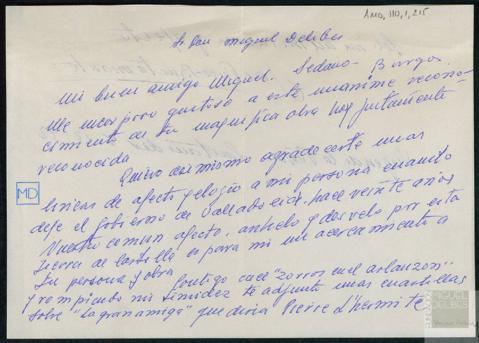 AMD, 110, 1, 215
Sr Don Miguel Delibes
Sedano - Burgos
Mi buen amigo Miguel.
Me incorporo gustoso a este unanime recono-
cimiento de tu magnifica obra hoy justamente
reconocida
Quiero asimismo agradecerte unas
lineas de afecto y elogio a mi persona cuando
deje el gobierno de Valladolid, hace veinte años
Nuestro comun afecto, anhelo y desvelo por esta
tierra de Castilla es para mi un acercamiento a
tu persona y obra
Contigo cace "zorros en el arlanzon"
y rompiendo mi timidez te adjunto unas cuartillas
sobre "La gran amiga" que diria Pierre L'hermite
MD
MIGUEL
DELIBES